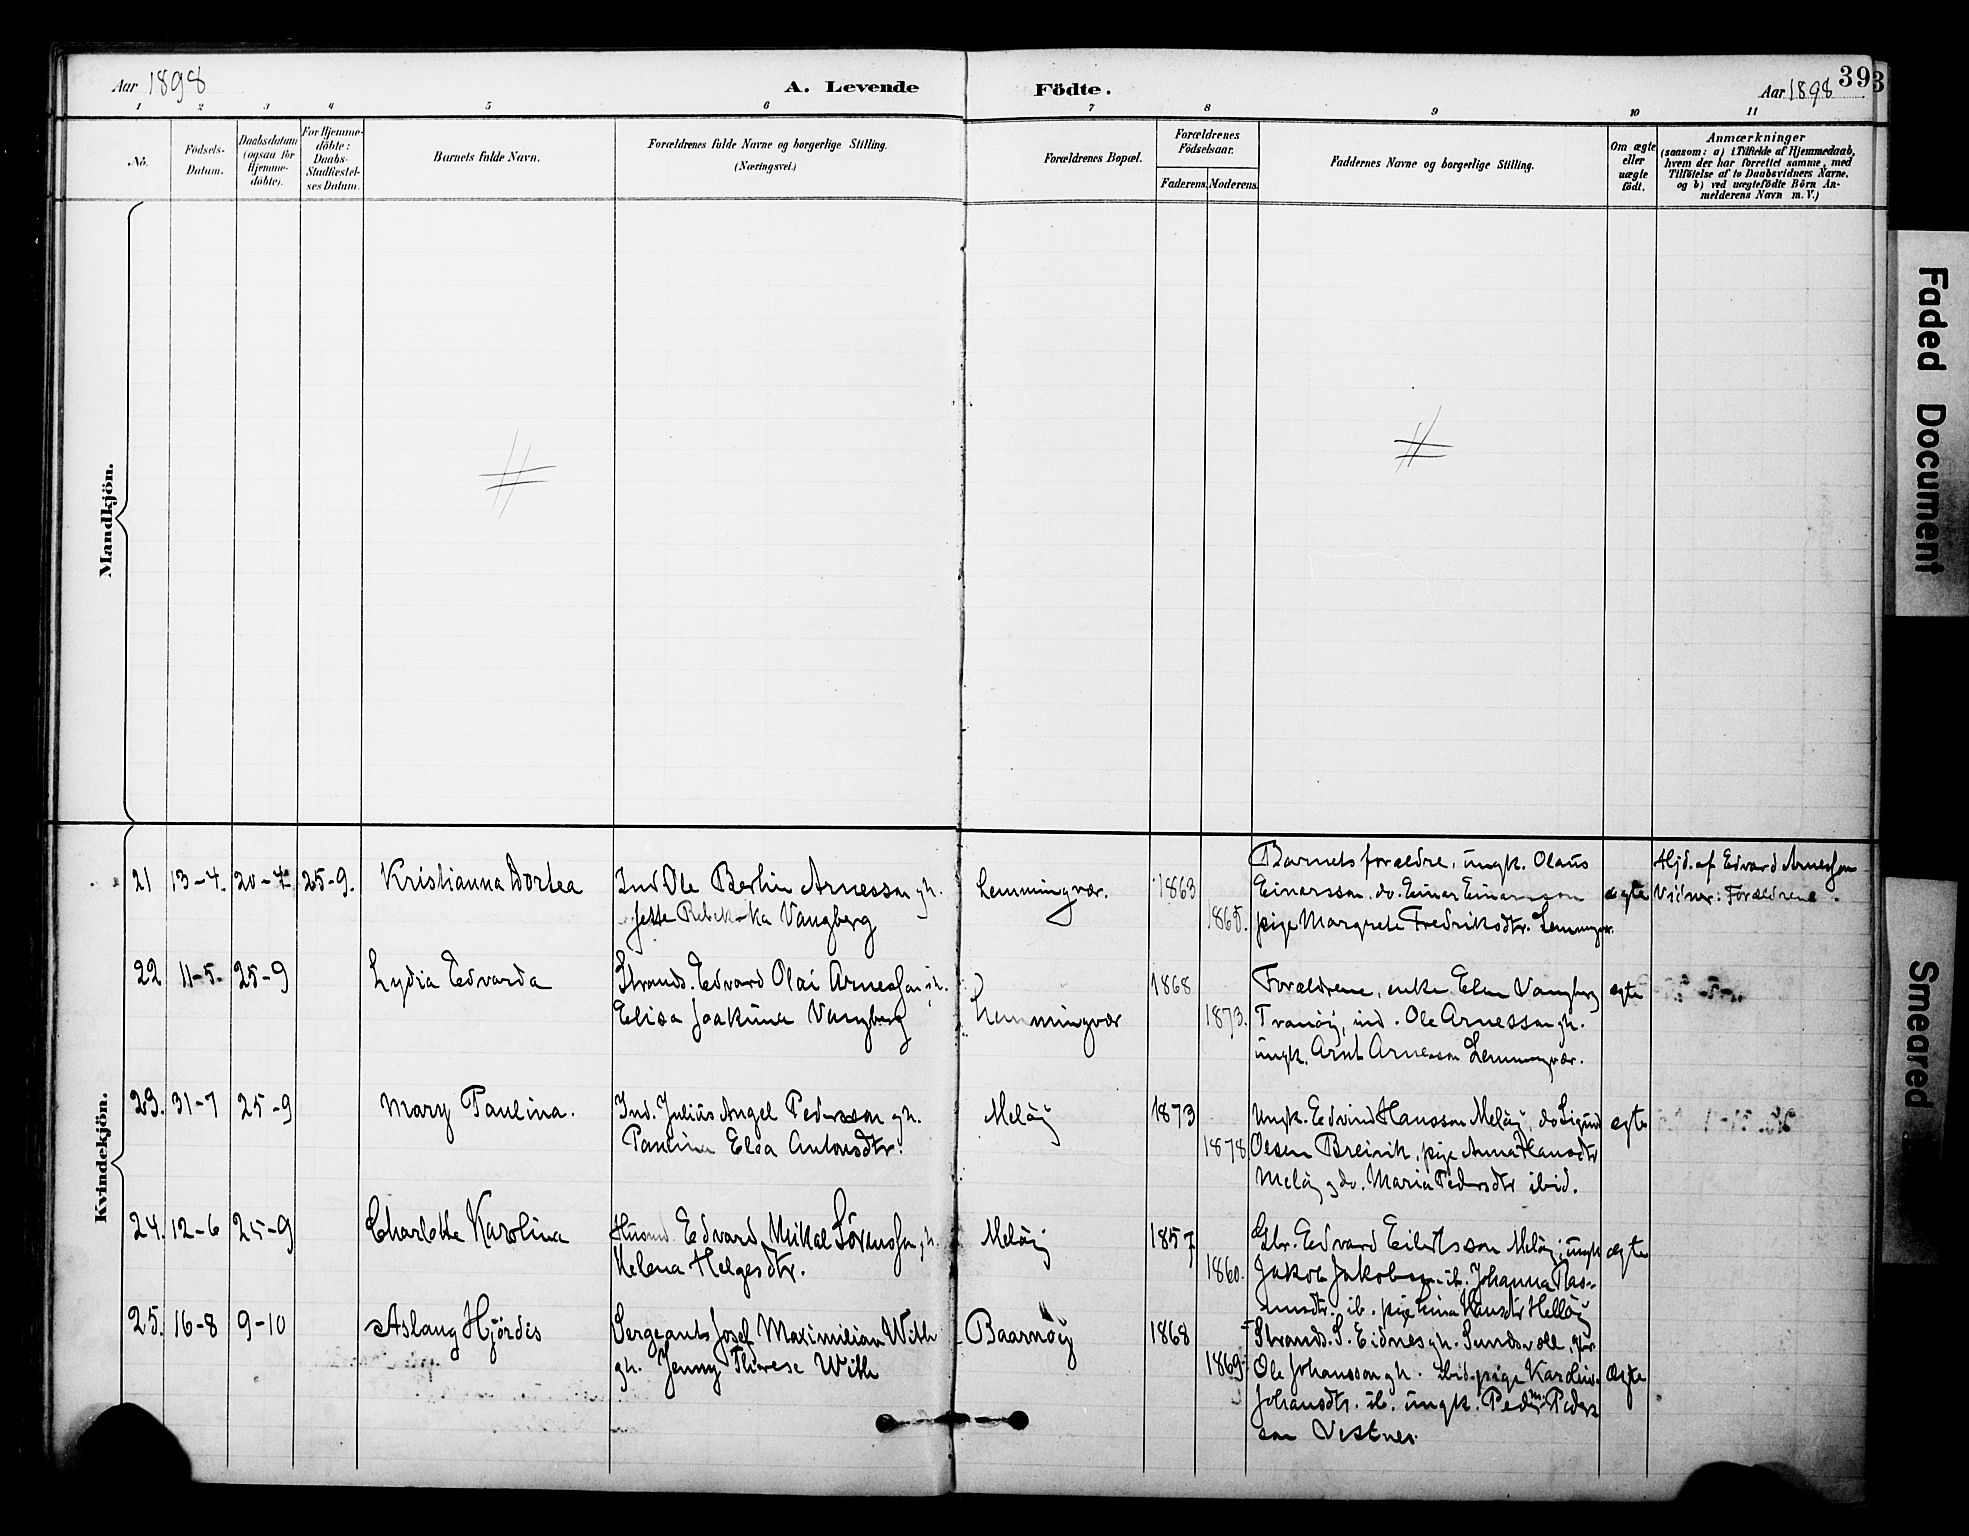 Aar 1898
A. Levende
Födte.
Aar 1898
39
3
1 2 3 4 5 6 7 8 9 10 11
Nô.
Födsels-
Datum.
Daabsdatum
(ogsaa for
Hjemme-
döbte).
For Hjemme-
döbte:
Daabs-
Stadfæstel-
ses Datum.
Barnets fulde Navn.
Forældrenes fulde Navne og borgerlige Stilling.
(Næringsvei.)
Forældrenes Bopæl.
Forældrenes
Födselsaar.
Faderens. Moderens.
Faddernes Navne og borgerlige Stilling.
Om ægte
eller
uægte
födt.
Anmærkninger
(saasom: a) i Tilfælde af Hjemmedaab,
hvem der har forrettet samme, med
Tilföielse af to Daabsvidners Navne,
og b) ved uægtefödte Börn An-
melderens Navn m. V.)
Mandkjön.
Kvindekjön.
21 13-4. 20-4 25-9. Kristianna Dortea
Ind Ole Berlin Arnesson gh.
Jette Rebekka Vangberg
Lemmingvær. 1863
1865.
Barnets forældre, ungk. Olaus
Einarsson, do. Einar Einarsson
pige Margrete Fredriksdtr. Lemmingvær.
ægte
Hjd. af Edvard Arnesson
Vidner: Forældrene.
22 11-5. 25-9 Lydia Edvarda
Strands. Edvard Olai Arnesson gh.
Elisa Joakima Vangberg
Lemmingvær
1868
1873.
Forældrene, enke Elen Vangberg
Tranöy, ind. Ole Arnesson gh.
ungk. Arnt Arnesson Lemmingvær.
ægte
23. 31-7 25-9 Mary Paulina.
Ind. Julius Angel Pedersson gh.
Paulina Elsa Antonsdtr.
Melöy 1873
1878
Ungk. Edvind Hansson Melöy, do Sigurd
Olsen Breivik, pige Anna Hansdtr
Melöy, do. Maria Pedersdtr ibid.
ægte
24. 12-6 25-9 Charlotte Karolina
Husmd Edvard Mikal Sörensson gh.
Helena Helgesdtr.
Melöy 1857
1860.
Gbr. Edvard Eilertsson Melöy, ungk
Jakob Jakobsen ib. Johanna Ras-
musdtr. ib. pige Lina Hansdtr Hellöy
ægte
25. 16-8 9-10 Aslaug Hjördis
Sergeant Josef Maximilian With
gh. Jenny Therese With
Baarnöy 1868
1869
Strands. S. Eidnes gh. Sundsvoll,
Ole Johansson gh. ibid. pige Karolin.
Johansdtr. ib. ungk. Peder M. Peders
son Vestnes.
ægte
Faded Document
Smeared